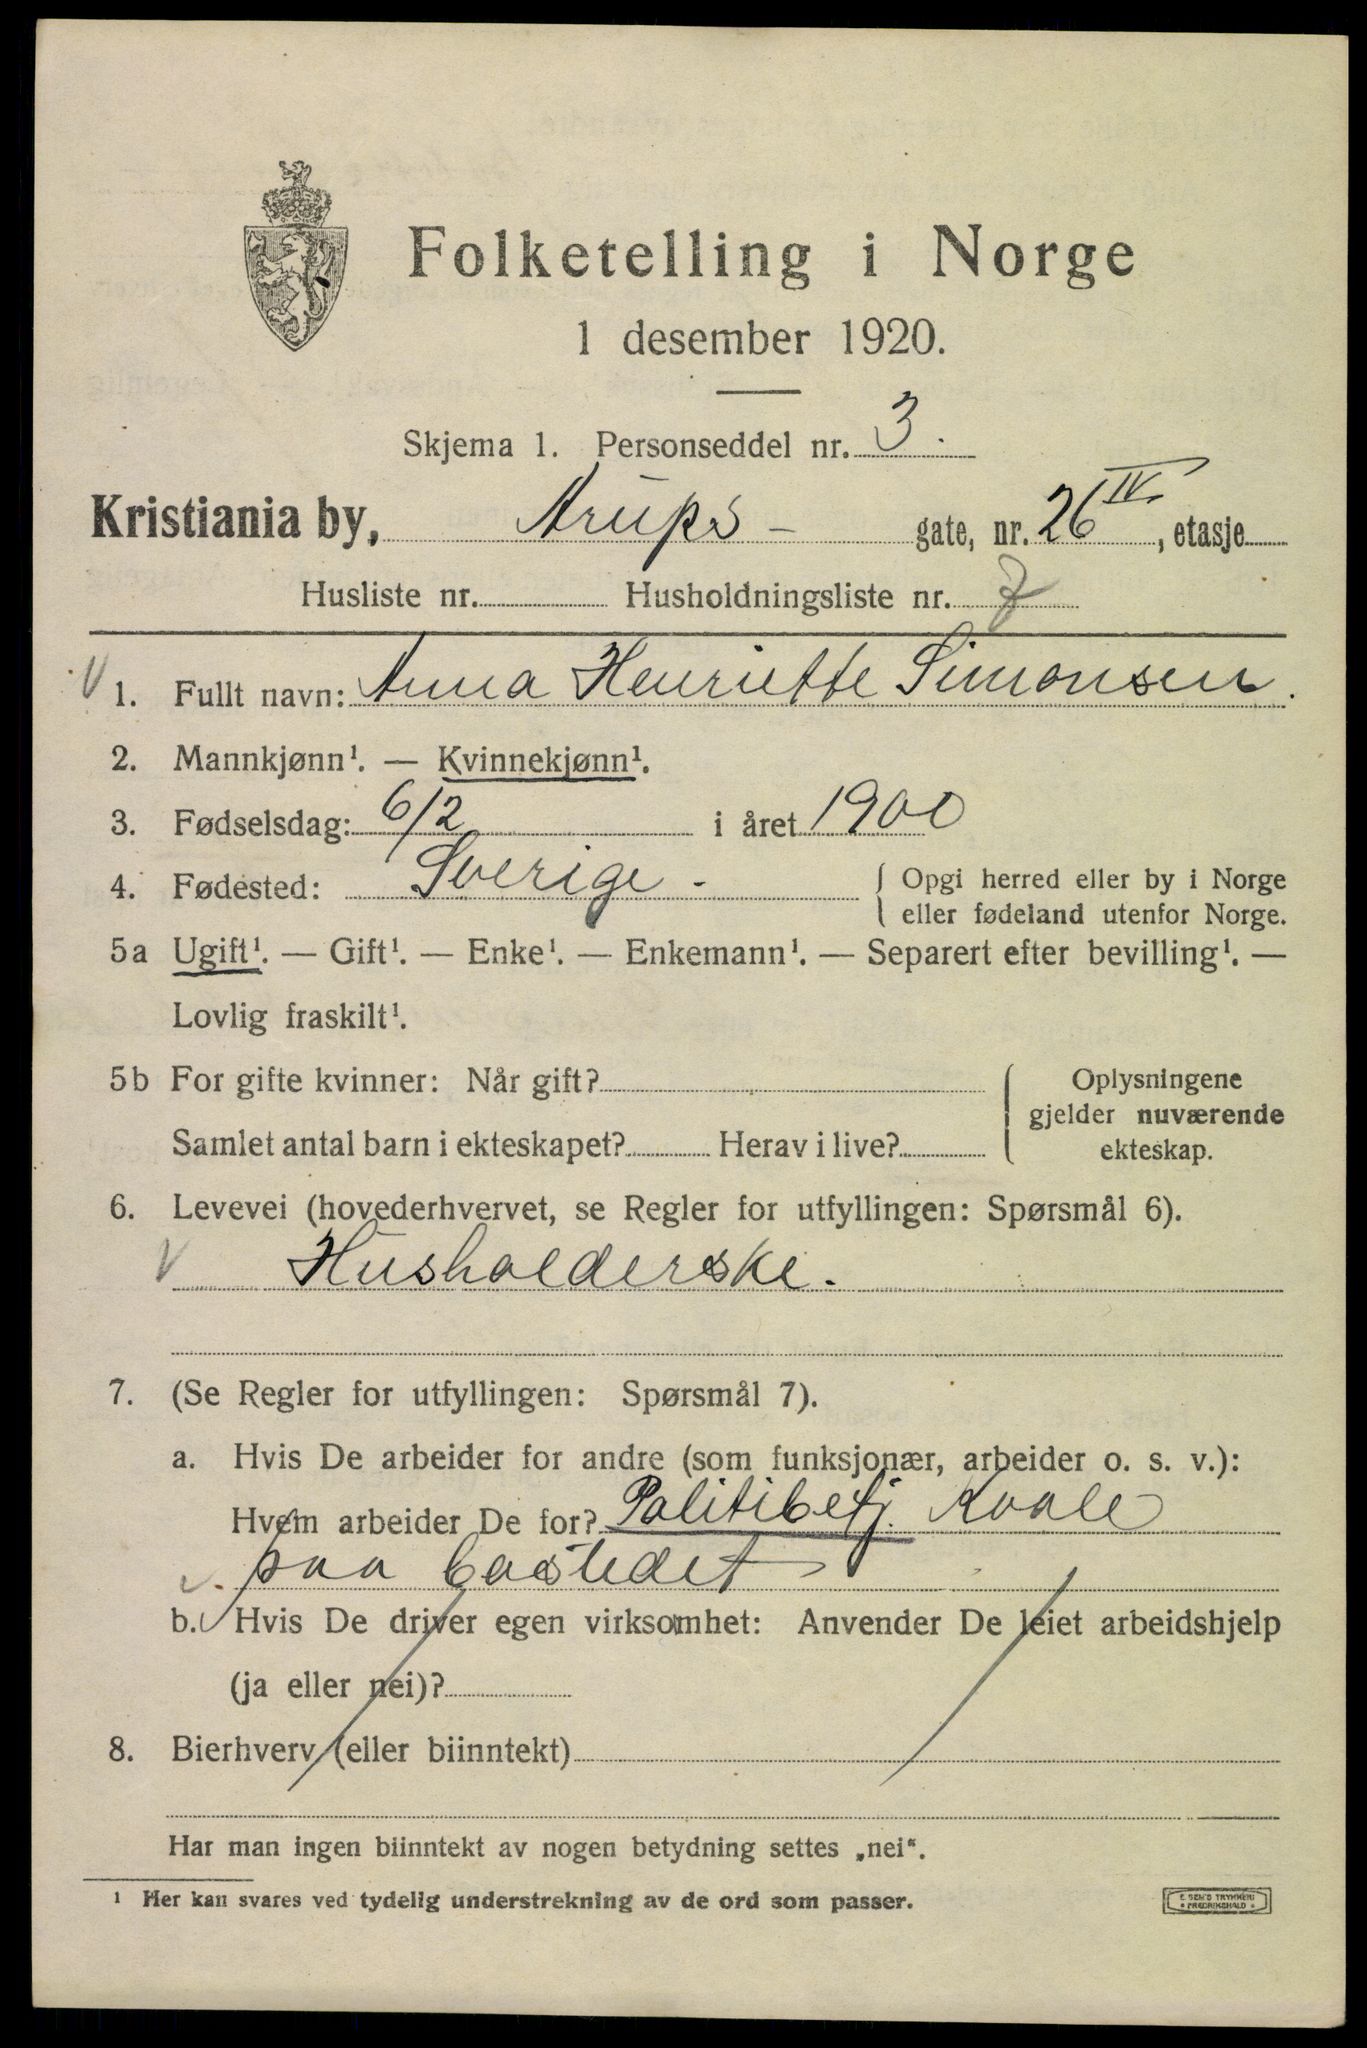 Folketelling i Norge
1 desember 1920.
Skjema 1. Personseddel nr. 3.
Kristiania by, Arups - gate, nr. 26 IV, etasje
Husliste nr. Husholdningsliste nr. 7
V 1. Fullt navn: Anna Henriette Simonsen.
2. Mannkjønn¹. — Kvinnekjønn¹.
3. Fødselsdag: 6/2 i året 1900
4. Fødested: Sverige - { Opgi herred eller by i Norge
eller fødeland utenfor Norge.
5a Ugift¹. — Gift¹. — Enke¹. — Enkemann¹. — Separert efter bevilling¹. —
Lovlig fraskilt¹.
5b For gifte kvinner: Når gift? { Oplysningene
gjelder nuværende
Samlet antal barn i ekteskapet? Herav i live? ekteskap.
6. Levevei (hovederhvervet, se Regler for utfyllingen: Spørsmål 6).
V Husholderske.
7. (Se Regler for utfyllingen: Spørsmål 7).
a. Hvis De arbeider for andre (som funksjonær, arbeider o. s. v.):
Hvem arbeider De for? Politibetj. Kvale
paa bostedet
b. Hvis De driver egen virksomhet: Anvender De leiet arbeidshjelp
(ja eller nei)?
8. Bierhverv (eller biinntekt)
Har man ingen biinntekt av nogen betydning settes „nei“.
¹ Her kan svares ved tydelig understrekning av de ord som passer.